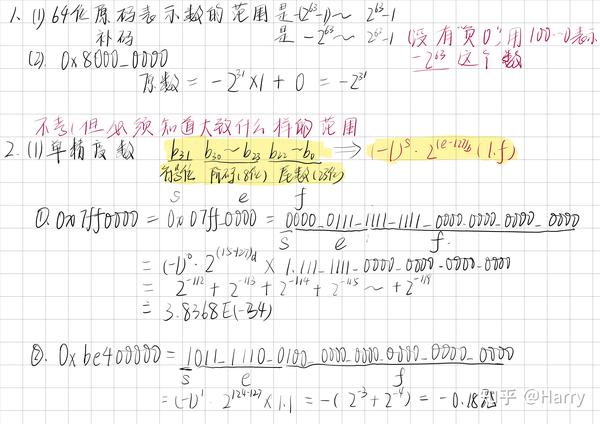 1. (1) 64位原码表示数的范围是 -(2^63-1) ~ 2^63-1
补码 是 -2^63 ~ 2^63-1 (没有"负0", 用100…0表示
-2^63 这个数
(2). 0x8000_0000
原数 = -2^31 ×1 + 0 = -2^31
不考, 但必须知道大致什么样的范围
2. (1) 单精度数 b31 b30~b23 b22~b0 ⟹ (-1)^s · 2^(e-127) (1.f)
符号位 阶码(8位) 尾数(23位)
s e f
①. 0x7ff0000 = 0x07ff_0000 = 0000_0111_1111_1111_0000_0000_0000_0000
s e f.
= (-1)^0 · 2^(15-127)d × 1.111_1111_0000_0000_0000_0000
= 2^-112 + 2^-113 + 2^-114 + 2^-115 ~ + 2^-119
= 3.8368E(-34)
②. 0xbe400000 = 1011_1110_0100_0000_0000_0000_0000_0000
s e f
= (-1)^1 · 2^124-127 × 1.1 = -(2^-3 + 2^-4) = -0.18
知乎 @Harry